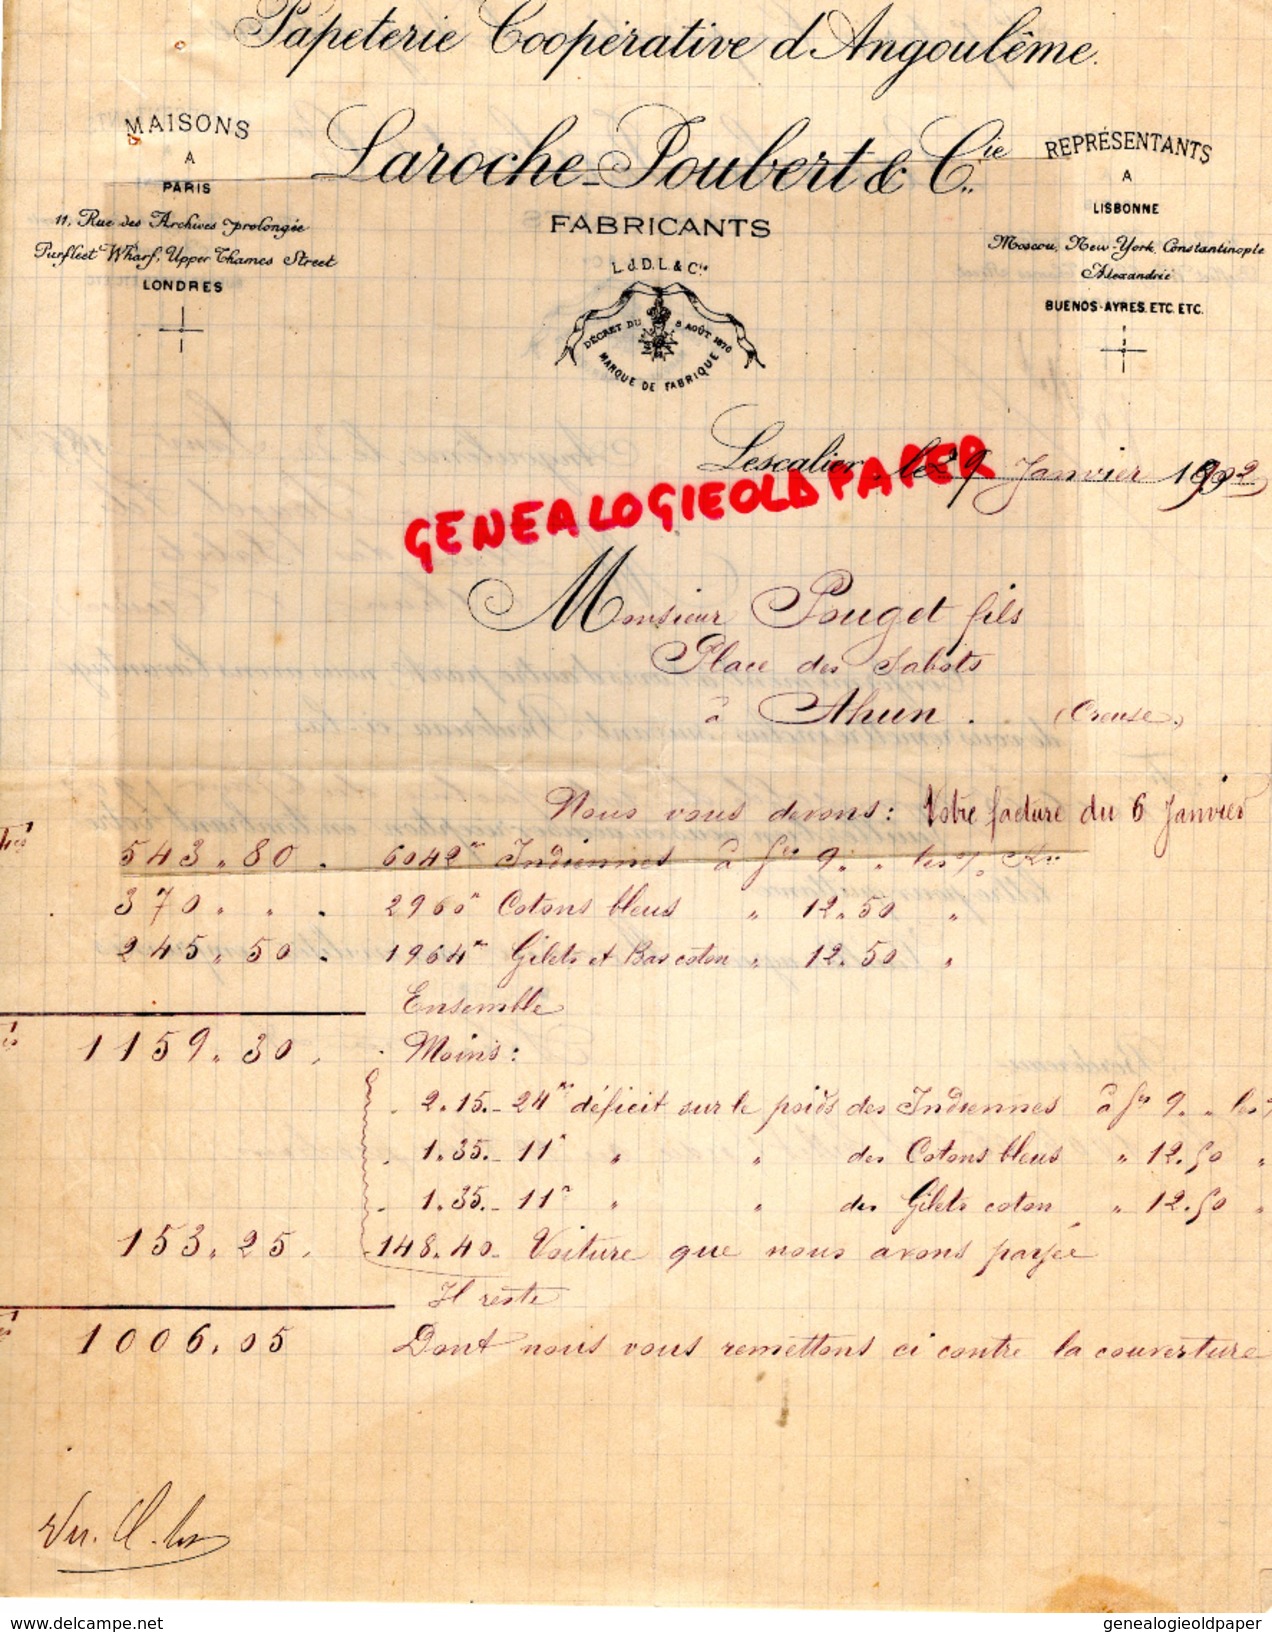 Papeterie Coopérative d'Angoulême.
MAISONS
A
PARIS
11, Rue des Archives prolongée
Purfleet Wharf, Upper Thames Street
LONDRES
Laroche-Joubert & Cie.
FABRICANTS
L.d.D.L & Cie
DÉCRET DU 8 AOÛT 1870
MARQUE DE FABRIQUE
REPRÉSENTANTS
A
LISBONNE
Moscou, New-York, Constantinople
Alexandrie
BUENOS-AYRES, ETC. ETC.
Lescalier, le 29 Janvier 1902
GENEALOGIEOLDPAPER
Monsieur Pouget fils
Place des Sabots
à Ahun. (Creuse.)
Nous vous devons: Votre facture du 6 Janvier
543.80. 6042 Indiennes à frs 9. " les % Kos
370. " . 2960 Cotons bleus " 12.50 "
245.50. 1964 Gilets et Bas coton " 12.50 "
Ensemble
1159.30. Moins:
2.15.- 24 déficit sur le poids des Indiennes à frs 9. " les %
1.35.- 11 " " des Cotons bleus " 12.50 "
1.35.- 11 " " des Gilets coton " 12.50 "
153.25. 148.40. Voiture que nous avons payée
Il reste
1006.05 Dont nous vous remettons ci contre la couverture
www.delcampe.net
genealogieoldpaper